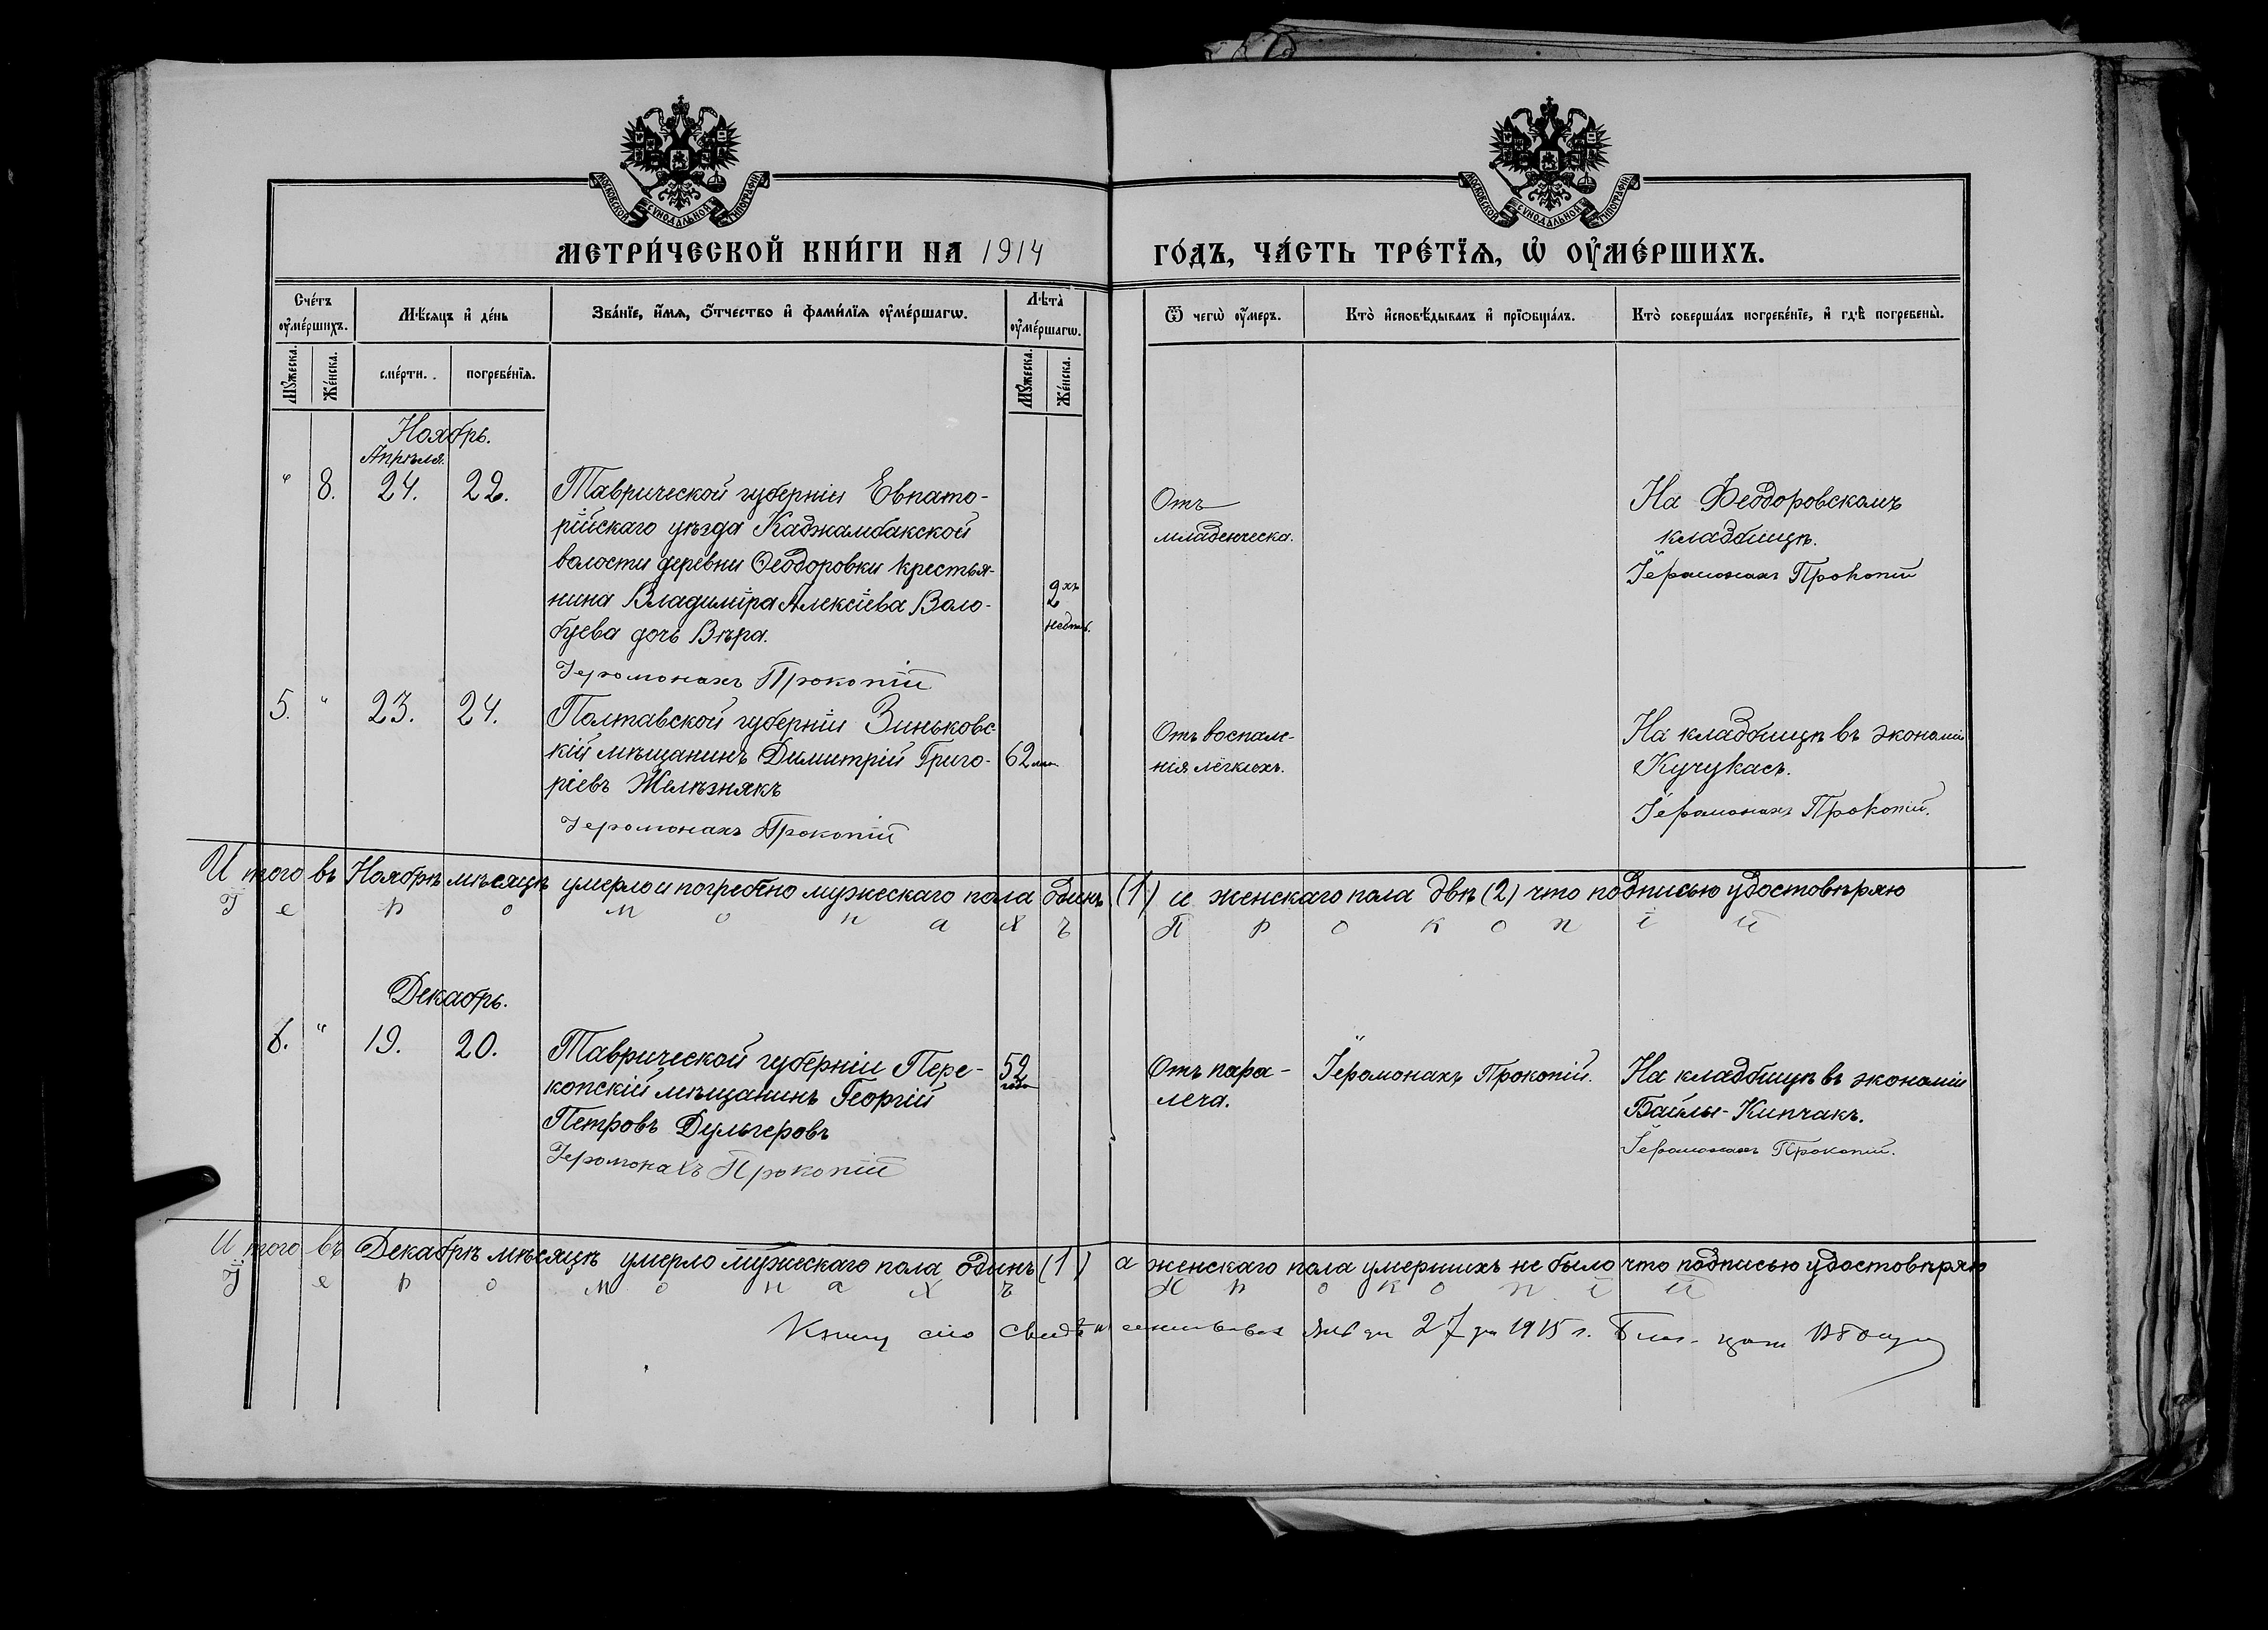 МОСКОВСКОЙ СѴНОДАЛЬНОЙ ТИПОГРАФІИ
МОСКОВСКОЙ СѴНОДАЛЬНОЙ ТИПОГРАФІИ
МЕТРИ́ЧЕСКОЙ КНИ́ГИ НА 1914
ГО́ДЪ, ЧА́СТЬ ТРЕ́ТЇѦ, Ѡ҆ ОУ҆МЕ́РШИХЪ.
Сче́тъ оу҆ме́ршихъ.
Мѣ́сяцъ и҆ де́нь
Зва́нїе, и҆́мя, ѻ҆́тчество и҆ фами́лїя оу҆ме́ршагѡ.
Лѣ́та оу҆ме́ршагѡ.
Ѿ чегѡ̀ оу҆́меръ.
Кто̀ и҆сповѣ́дывалъ и҆ прїѡбща́лъ.
Кто̀ соверша́лъ погребе́нїе, и҆ гдѣ̀ погребены̀.
Мꙋ́жеска.
Же́нска.
сме́рти.
погребе́нїя.
Мꙋ́жеска.
Же́нска.
Ноябрь.
Апрѣля.
" 8. 24. 22.
Таврической губерніи Евпато-
рійскаго уѣзда Каджамбакской
волости деревни Ѳеодоровки крестья-
нина Владиміра Алексіева Воло-
буева дочь Вѣра.
Іеромонахъ Прокопій
2хъ
недѣль.
Отъ
младенческа.
На Феодоровскомъ
кладбищѣ.
Іеромонахъ Прокопій
5. " 23. 24.
Полтавской губерніи Зиньковс-
кій мѣщанинъ Димитрій Григо-
ріевъ Желѣзнякъ
Іеромонахъ Прокопій
62 лѣт
Отъ воспале-
нія лёгкихъ.
На кладбищѣ въ экономіи
Кучукасъ.
Іеромонахъ Прокопій.
И того въ Ноябрѣ мѣсяцѣ умерло и погребено мужескаго пола одинъ (1) и женскаго пола двѣ (2) что подписью удостовѣряю
Іеромонахъ Прокопій
Декабрь.
6. " 19. 20.
Таврической губерніи Пере-
копскій мѣщанинъ Георгій
Петровъ Дульгеровъ
Іеромонахъ Прокопій
52
года
Отъ пара-
леча.
Іеромонахъ Прокопій.
На кладбищѣ въ экономіи
Байлы-Кипчакъ.
Іеромонахъ Прокопій.
И того въ Декабрѣ мѣсяцѣ умерло мужескаго пола одинъ (1) а женскаго пола умершихъ не было что подписью удостовѣряю
Іеромонахъ Прокопій
Книгу сію 27 1915 г.